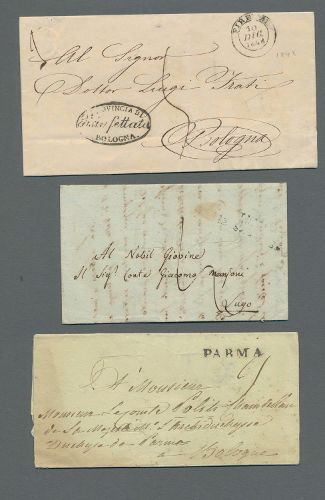 FIRENZE
10
DIC
1848
Al Signor
Dottor Luigi Frati
Bologna
PROVINCIA DI
BOLOGNA
Al Nobil Giovine
Il Sigr Conte Giacomo Manzoni
Lugo
PARMA
A Monsieur
Monsieur le Comte Politi
de Sa Majesté
Duchesse de Parme
à Bologne